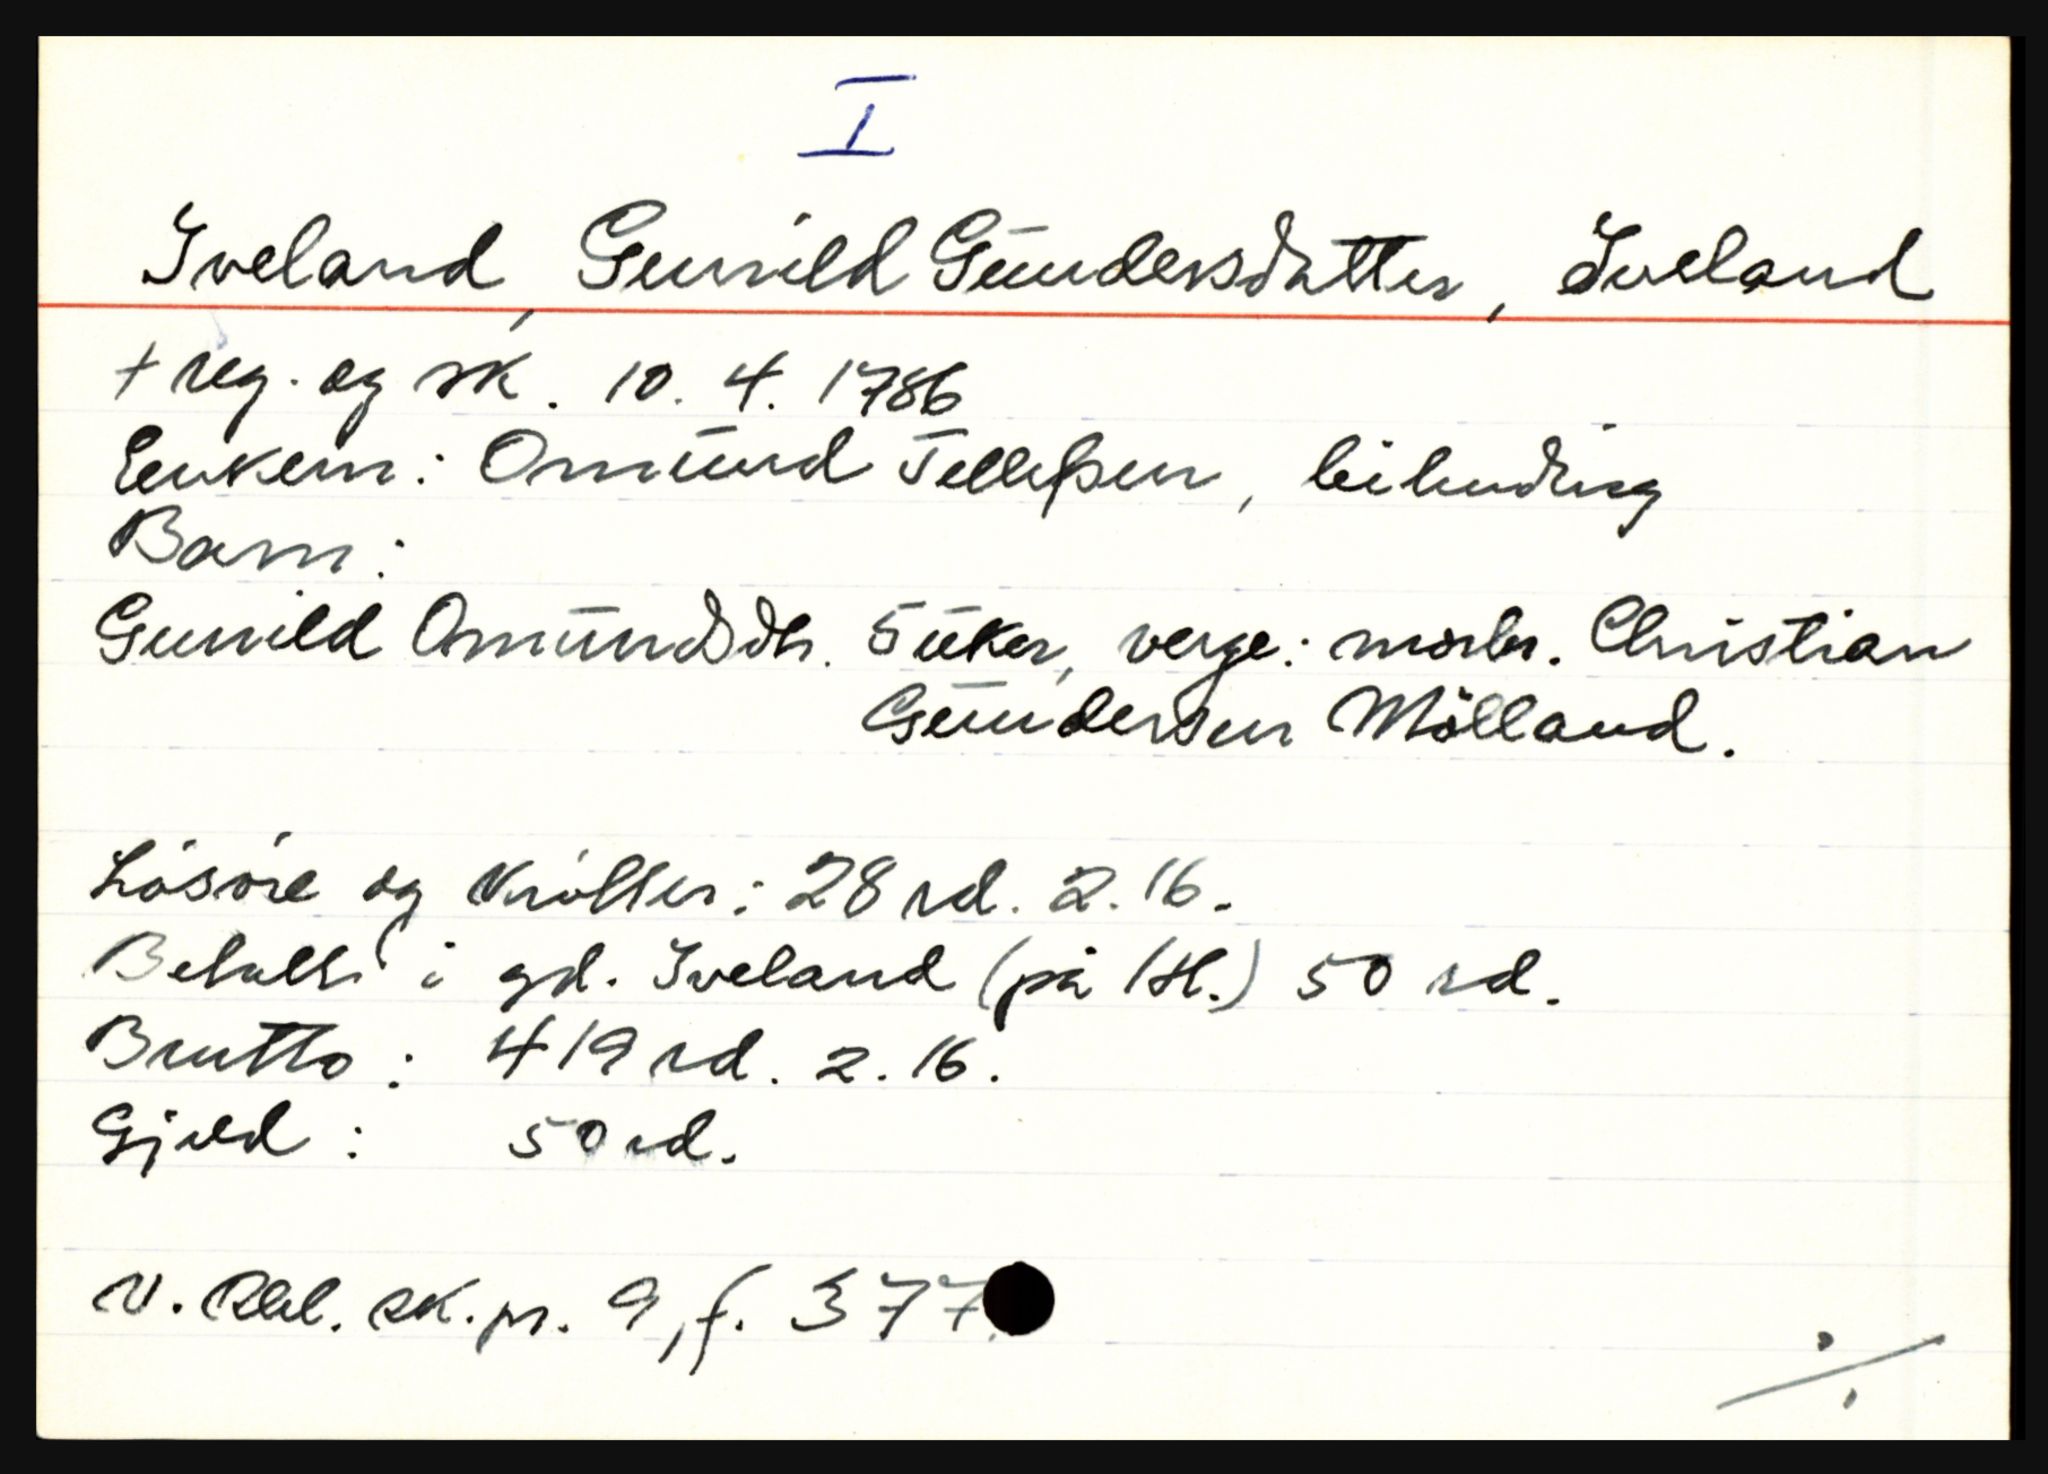 I
Iveland, Gunild Gundersdatter, Iveland
+ reg. og sk. 10. 4. 1786
Enkem: Omund Tellefsen, leilending
Barn:
Gunild Omundsdtr. 5 uker, verge: morbr. Christian
Gundersen Mölland.
Lösöre og krötter: 28 rd. 2. 16.
Betalt i gd. Iveland (på 1 hd.) 50 rd.
Brutto: 419 rd. 2. 16.
Gjeld: 50 rd.
V. Rbl. sk. pr. 9, f. 377.
·/.